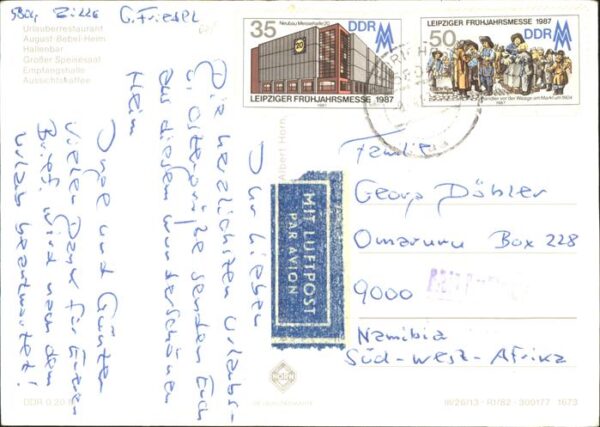 G. Friedel
Urlauberrestaurant
August-Bebel-Heim
Hallenbar
Großer Speisesaal
Empfangshalle
Aussichtskaffee
35
Neubau Messehalle 20
DDR
LEIPZIGER FRÜHJAHRSMESSE 1987
1987
LEIPZIGER FRÜHJAHRSMESSE 1987
50
DDR
Händler vor der Waage am Markt um 1804
1987
Ihr Lieben
Die herzlichsten Urlaubs-
u. Ostergrüße senden Euch
aus diesem wunderschönen
Heim
Inge und Günter
Vielen Dank für Euren
Brief, wird nach dem
Urlaub beantwortet!
MIT LUFTPOST
PAR AVION
Albert Horn
Familie
Georg Döbler
Omaruru Box 228
9000
Namibia
Süd-West-Afrika
DDR 0,20 M
III/26/13 · R1/82 · 300177 1673